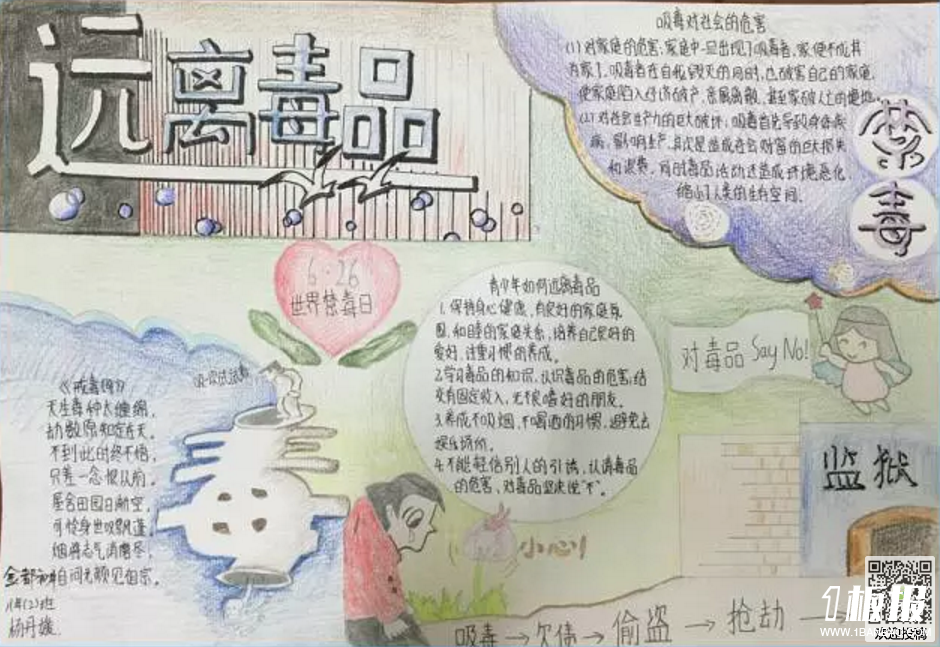 远离毒品
吸毒对社会的危害
(1)对家庭的危害:家庭中一旦出现了吸毒者,家便不成其
为家了。吸毒者在自我毁灭的同时,也破害自己的家庭,
使家庭陷入经济破产、亲属离散、甚至家破人亡的境地。
(2)对社会生产力的巨大破坏:吸毒首先导致身体疾
病,影响生产,其次是造成社会财富的巨大损失
和浪费,同时毒品活动还造成环境恶化,
缩小了人类的生存空间。
禁毒
6·26
世界禁毒日
青少年如何远离毒品
1.保持身心健康,有良好的家庭氛
围,和睦的家庭关系,培养自己良好的
爱好,注重习惯的养成。
2.学习毒品的知识,认识毒品的危害,结
交有固定收入,无不良嗜好的朋友。
3.养成不吸烟,不喝酒的习惯,避免去
娱乐场所。
4.不能轻信别人的引诱,认清毒品
的危害,对毒品坚决说"不"。
对毒品 Say No!
吸一口试试看
天生毒种太缠绵,
劫数原知定在天。
不到此时终不悟,
只差一念恨从前。
屋舍田园日渐空,
可怜身世吸飘蓬,
烟将志气消磨尽,
自问无颜见祖宗。
八年(2)班
杨丹媛
小心!
监狱
吸毒→欠债→偷盗→抢劫→
1板报
WWW.1BANBAO.COM
欢迎投稿